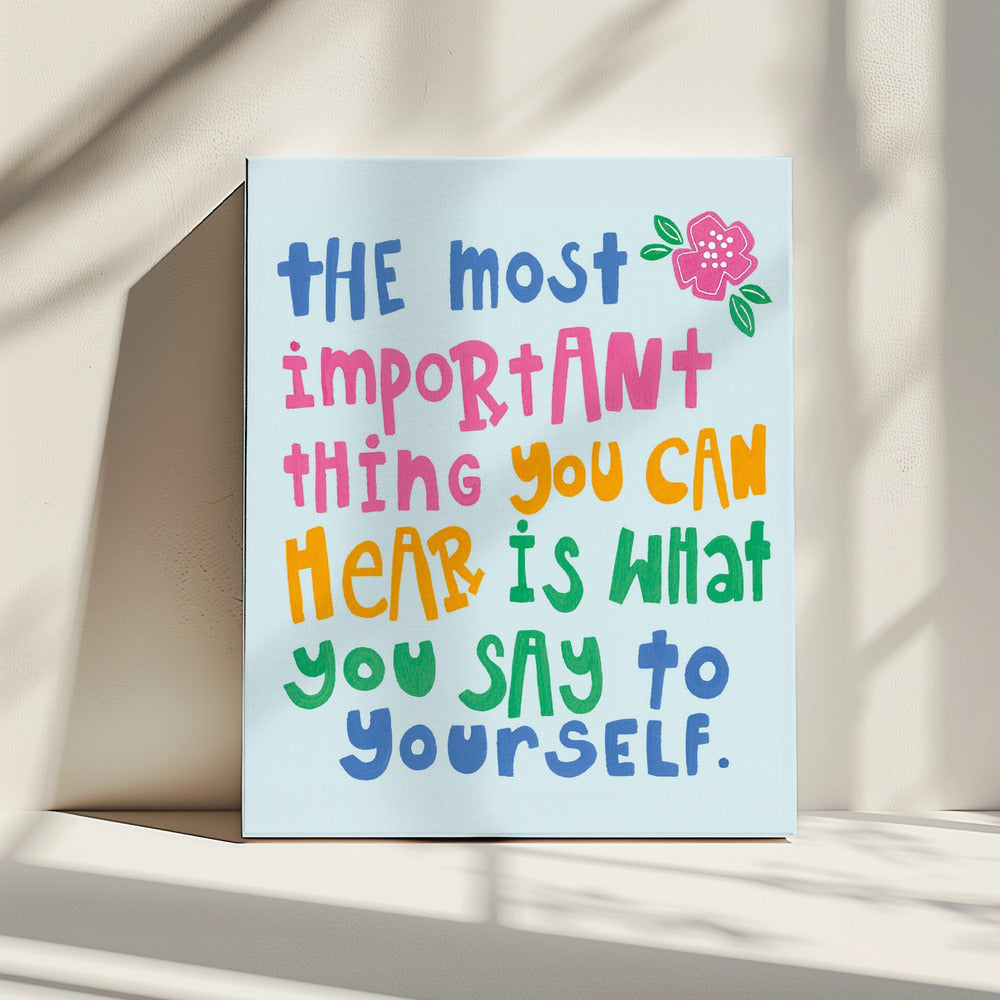 tHE most
importANt
tHiNG you CAN
HeAR is wHat
you SAy to
yourSELF.